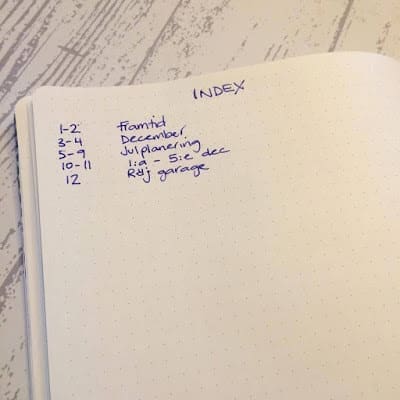 INDEX
1-2 Framtid
3-4 December
5-9 Julplanering
10-11 1:a - 5:e dec
12 Röj garage